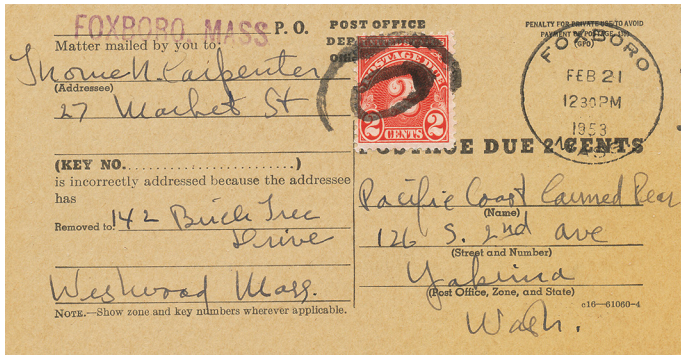 FOXBORO, MASS P. O.
Matter mailed by you to:
Thorne N. Carpenter
(Addressee)
27 Market St
(KEY NO. . . . . . . . . . . . . . . . . . . . . . . )
is incorrectly addressed because the addressee
has
Removed to: 142 Birch Tree
Drive
Westwood Mass.
NOTE.—Show zone and key numbers wherever applicable.
POST OFFICE
POSTAGE DUE
2
2 CENTS 2
PENALTY FOR PRIVATE USE TO AVOID
PAYMENT OF POSTAGE, $300
(GPO)
FOXBORO
FEB 21
1230PM
1953
MASS.
POSTAGE DUE 2 CENTS
Pacific Coast Canned Pear
(Name)
126 S. 2nd ave
(Street and Number)
Yakima
(Post Office, Zone, and State)
c16—61060-4
Wash.